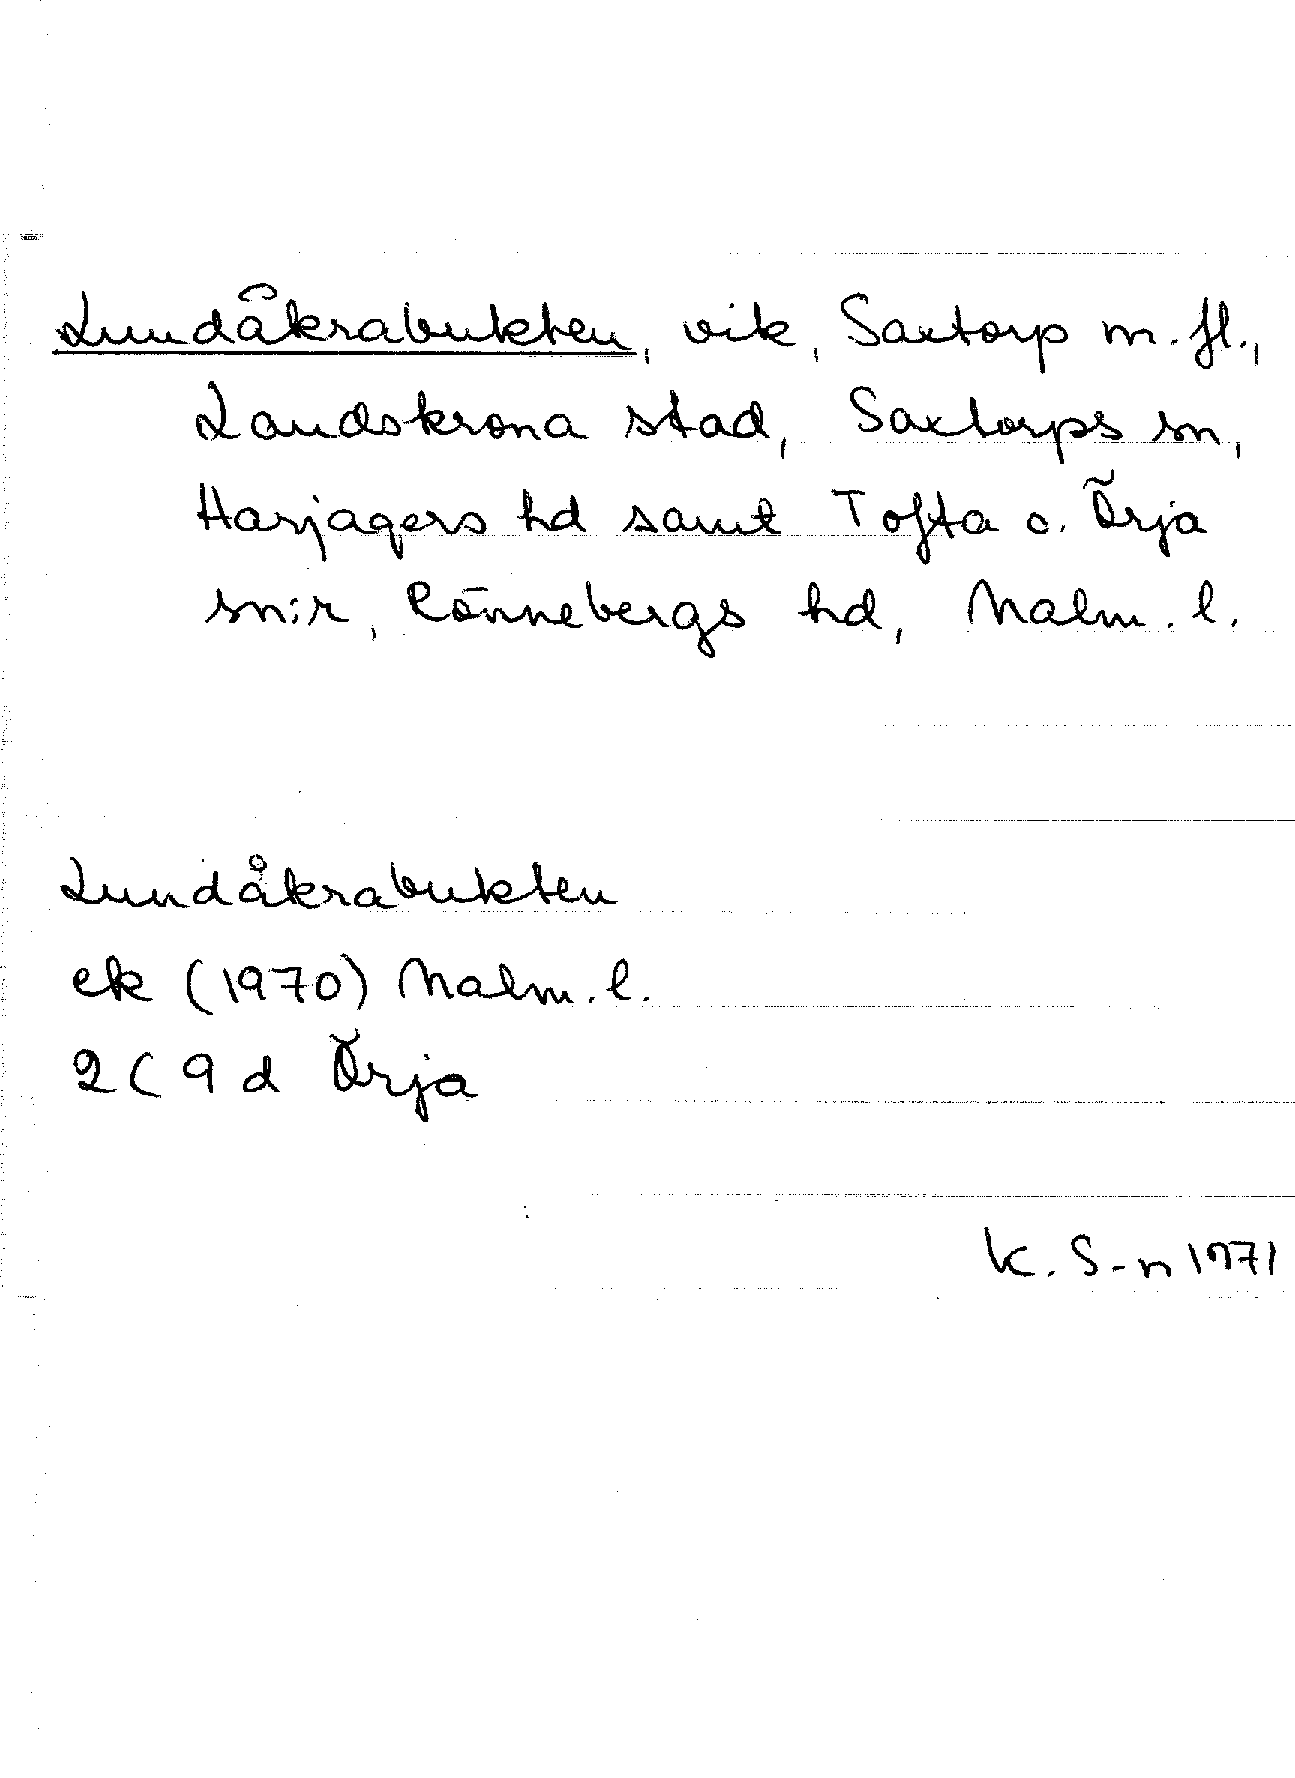 Lundåkrabukten, vik, Saxtorp m. fl.,
Landskrona stad, Saxtorps sn,
Harjagers hd samt Tofta o. Örja
sn:r, Rönnebergs hd, Malm. l.
Lundåkrabukten
ek (1970) Malm. l.
2C 9d Örja
K. S-n 1971